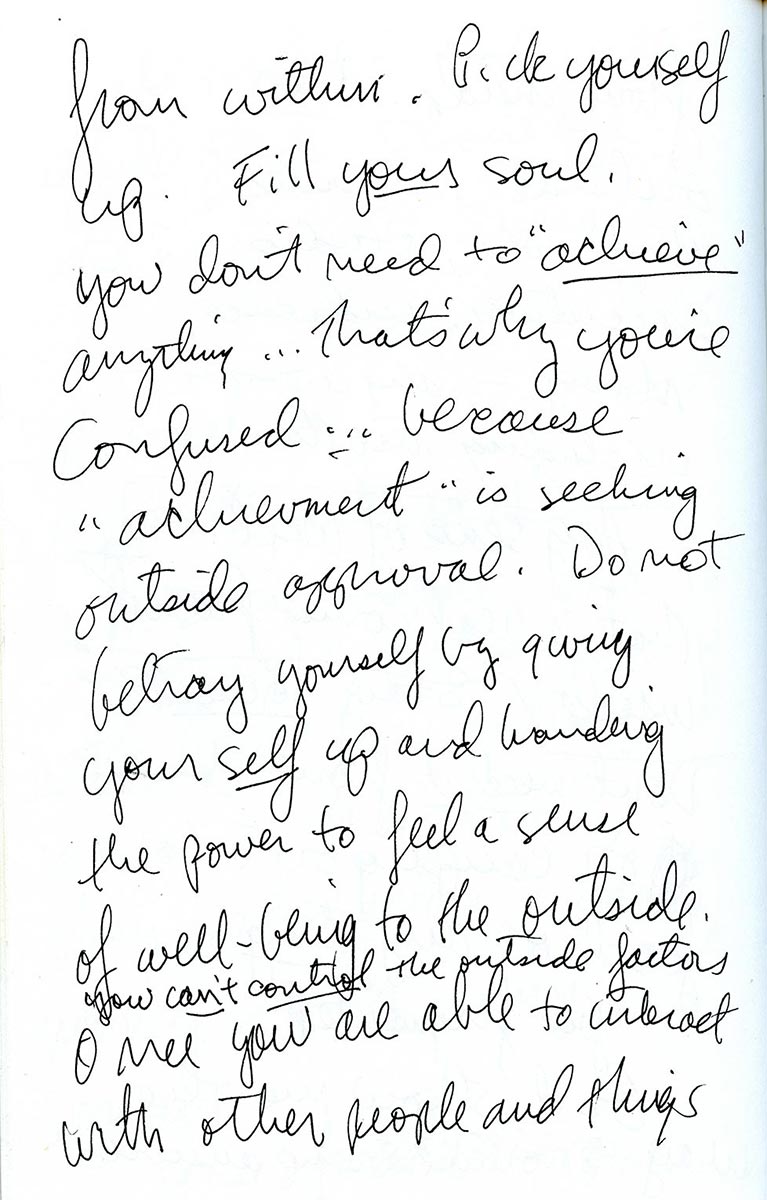 from within. Pick yourself
up. Fill your soul.
you don't need to "achieve"
anything ... that's why you're
Confused ... because
"achievment" is seeking
outside approval. Do not
betray yourself by giving
your self up and handing
the power to feel a sense
of well-being to the outside.
you can't control the outside factors
Once you are able to interact
with other people and things